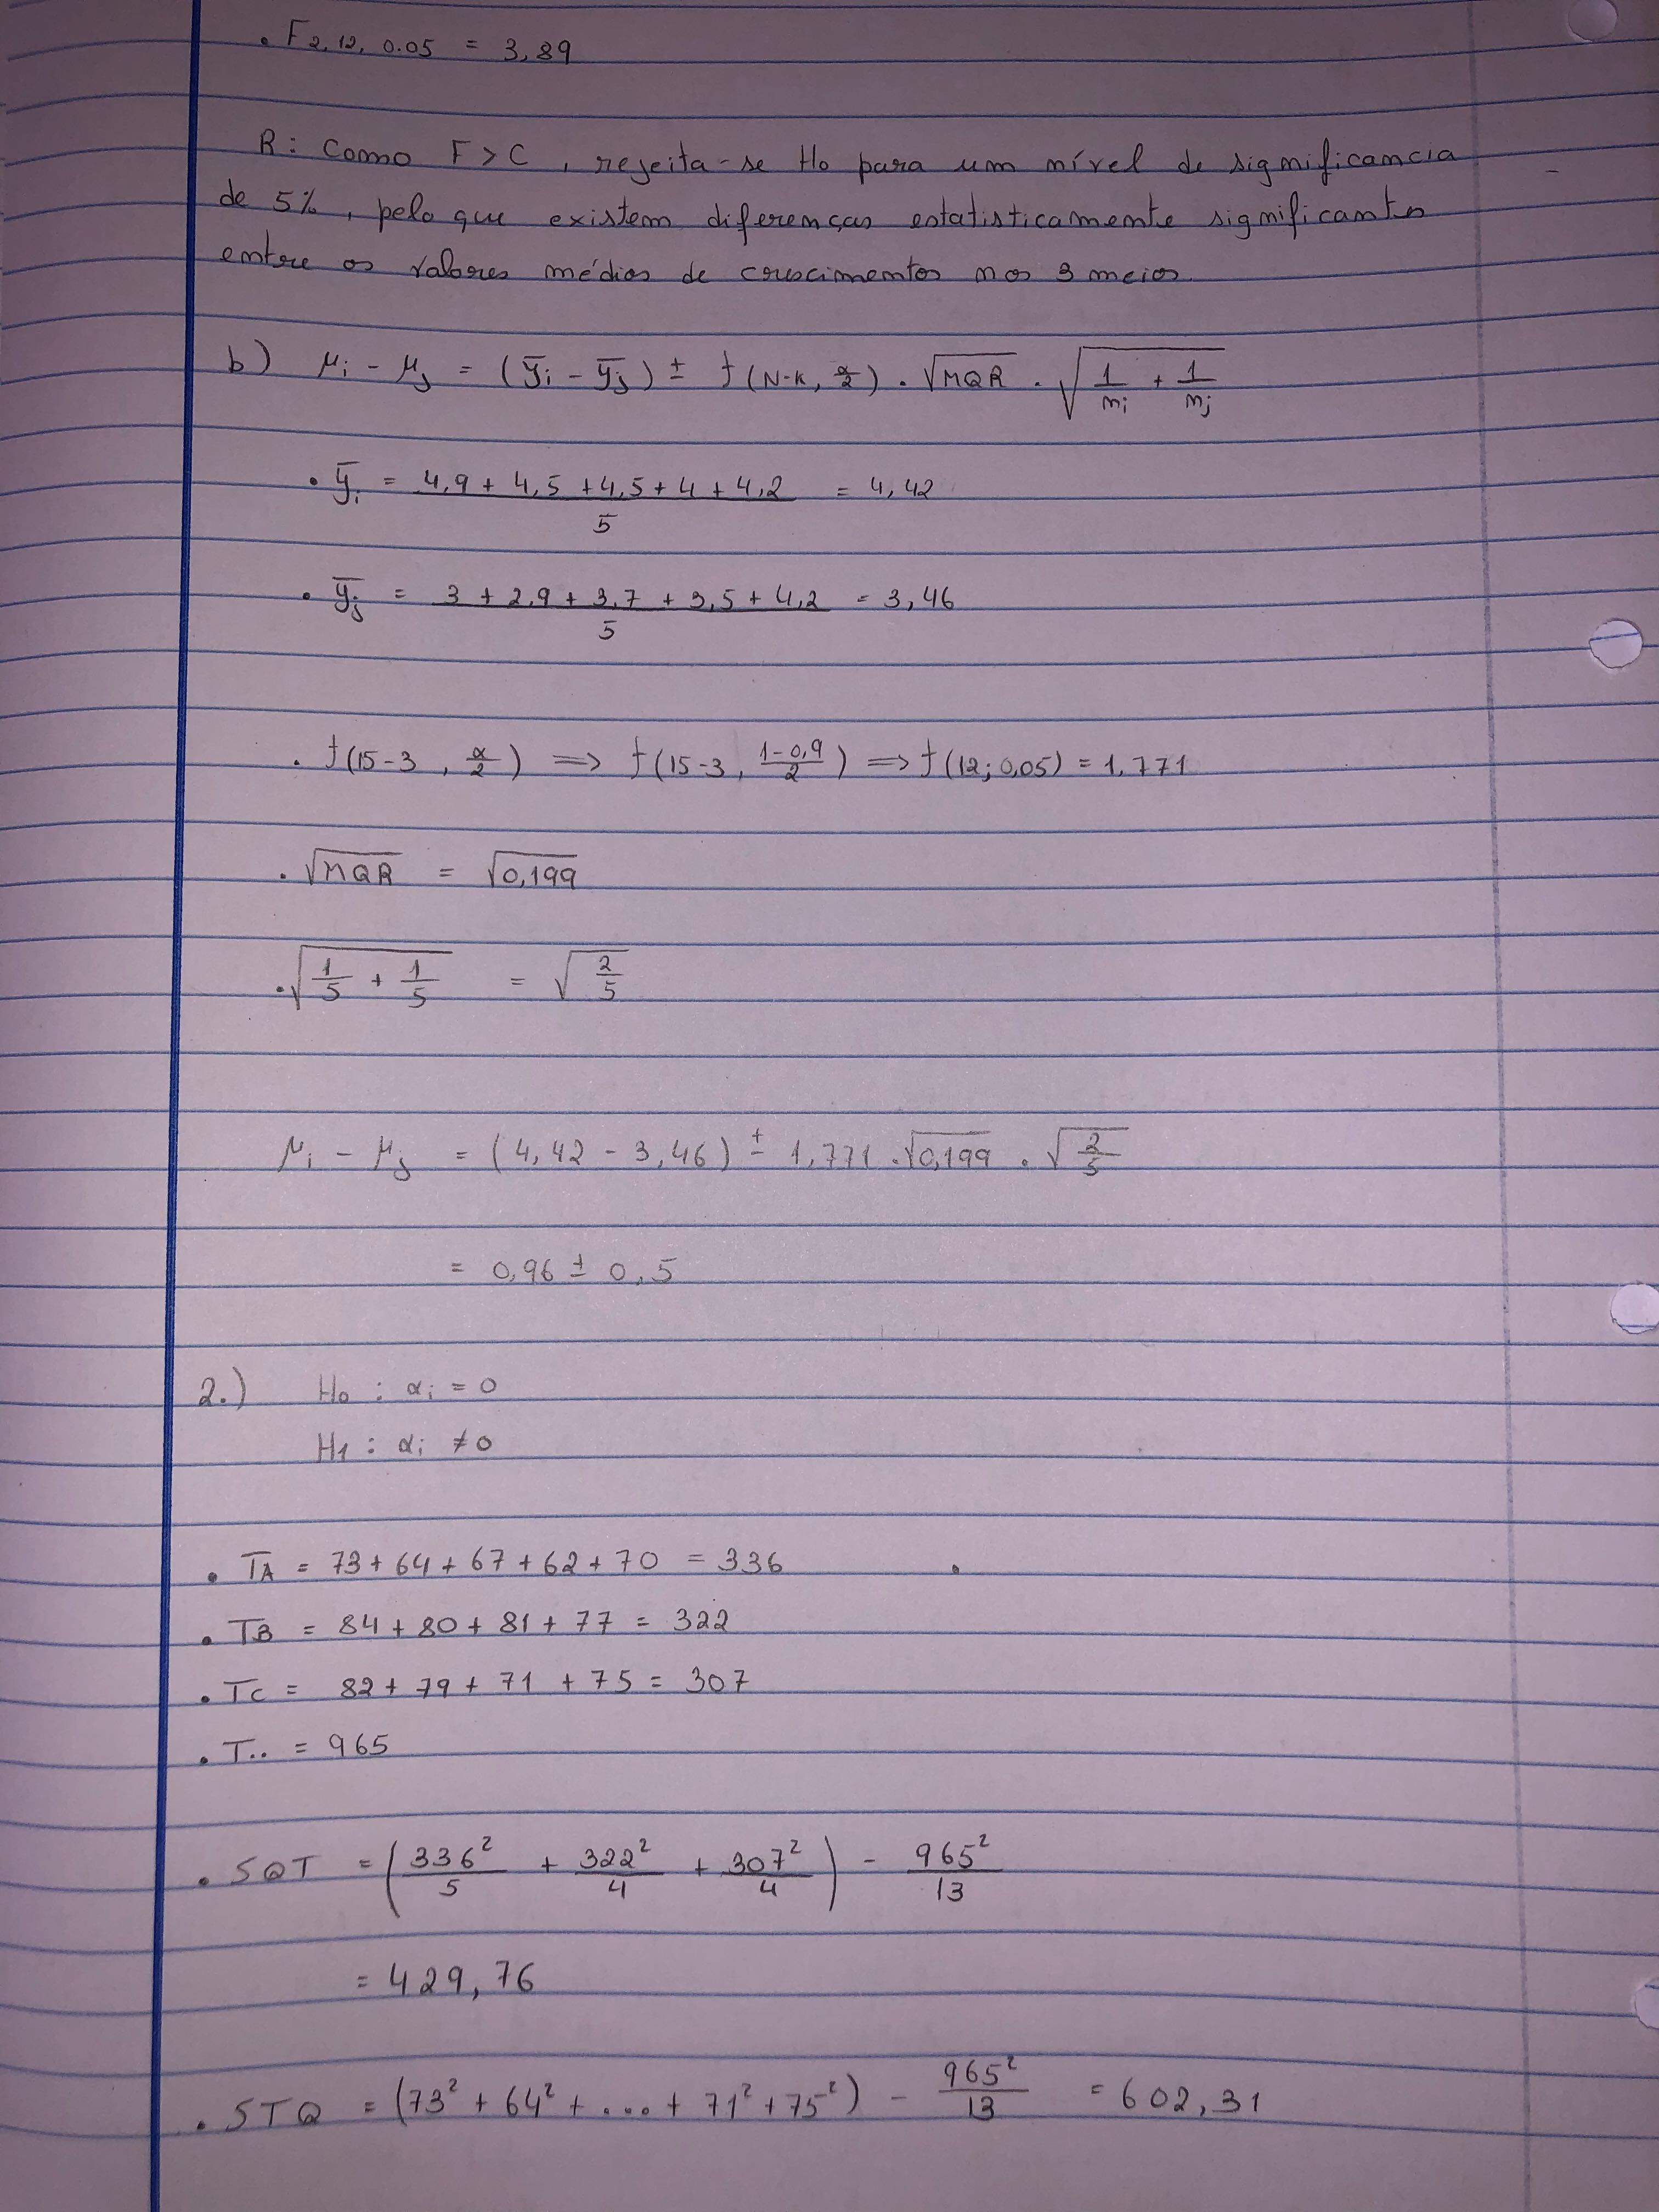 . F 2, 12, 0.05 = 3,89
R: Como F > C , rejeita-se H0 para um nível de significancia
de 5% , pelo que existem diferenças estatisticamente significantes
entre os valores médios de crescimentos nos 3 meios.
b) μi - μj = (ȳi - ȳj) ± t(N-K, α/2) . √MQR . √(1/ni + 1/nj)
. ȳi = (4,9 + 4,5 + 4,5 + 4 + 4,2)/5 = 4,42
. ȳj = (3 + 2,9 + 3,7 + 3,5 + 4,2)/5 = 3,46
. t(15-3 , α/2) => t(15-3 , (1-0,9)/2) => t(12; 0,05) = 1,771
. √MQR = √0,199
. √(1/5 + 1/5) = √(2/5)
μi - μj = (4,42 - 3,46) ± 1,771 . √0,199 . √(2/5)
= 0,96 ± 0,5
2.) H0 : αi = 0
H1 : αi ≠ 0
. TA = 73 + 64 + 67 + 62 + 70 = 336
. TB = 84 + 80 + 81 + 77 = 322
. TC = 82 + 79 + 71 + 75 = 307
. T.. = 965
. SQT = (336²/5 + 322²/4 + 307²/4) - 965²/13
= 429,76
. STQ = (73² + 64² + ... + 71² + 75²) - 965²/13 = 602,31